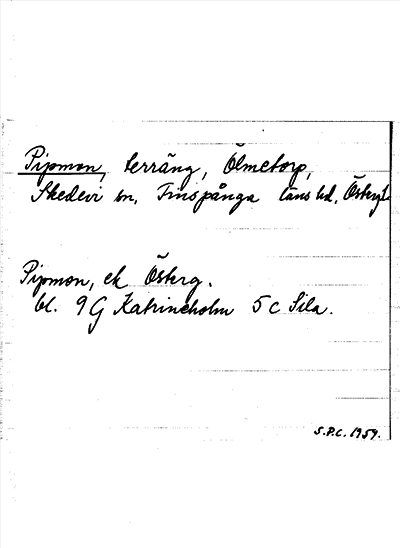 Pipmon, terräng, Ölmetorp,
Skedevi sn, Finspånga läns hd, Östergl
Pipmon, ek Österg.
bl. 9 G Katrineholm 5 c Sila.
S.P.C. 1959.